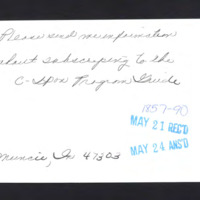 Please send me information
about subscriping to the
C-Span Program Guide
1857-90
MAY 21 REC'D
MAY 24 ANS'D
Muncie, In 47303